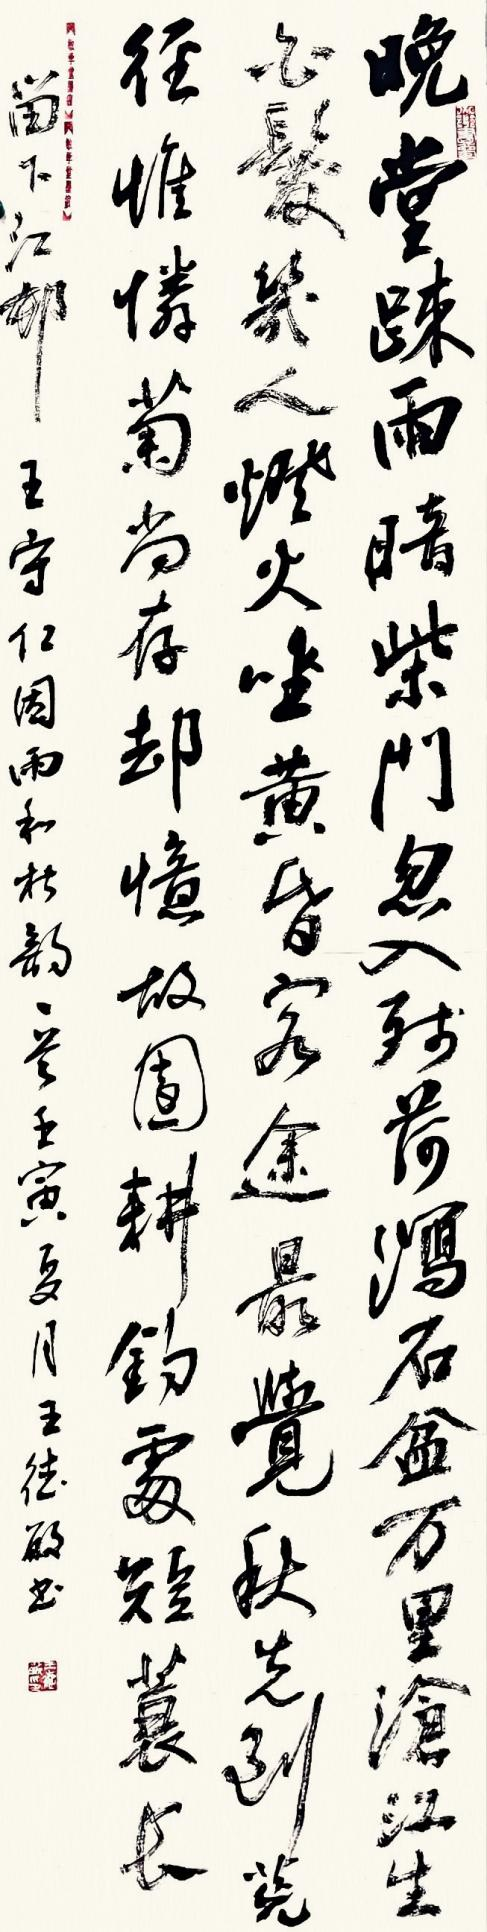 晚堂疎雨暗柴門忽入残荷瀉石盆万里滄江生
白髮幾人燈火坐黄昏客途最覺秋先到荒
徑惟憐菊尚存却憶故園耕釣處短蓑長
笛下江邨 王守仁因雨和杜韵 壬寅夏月王德书